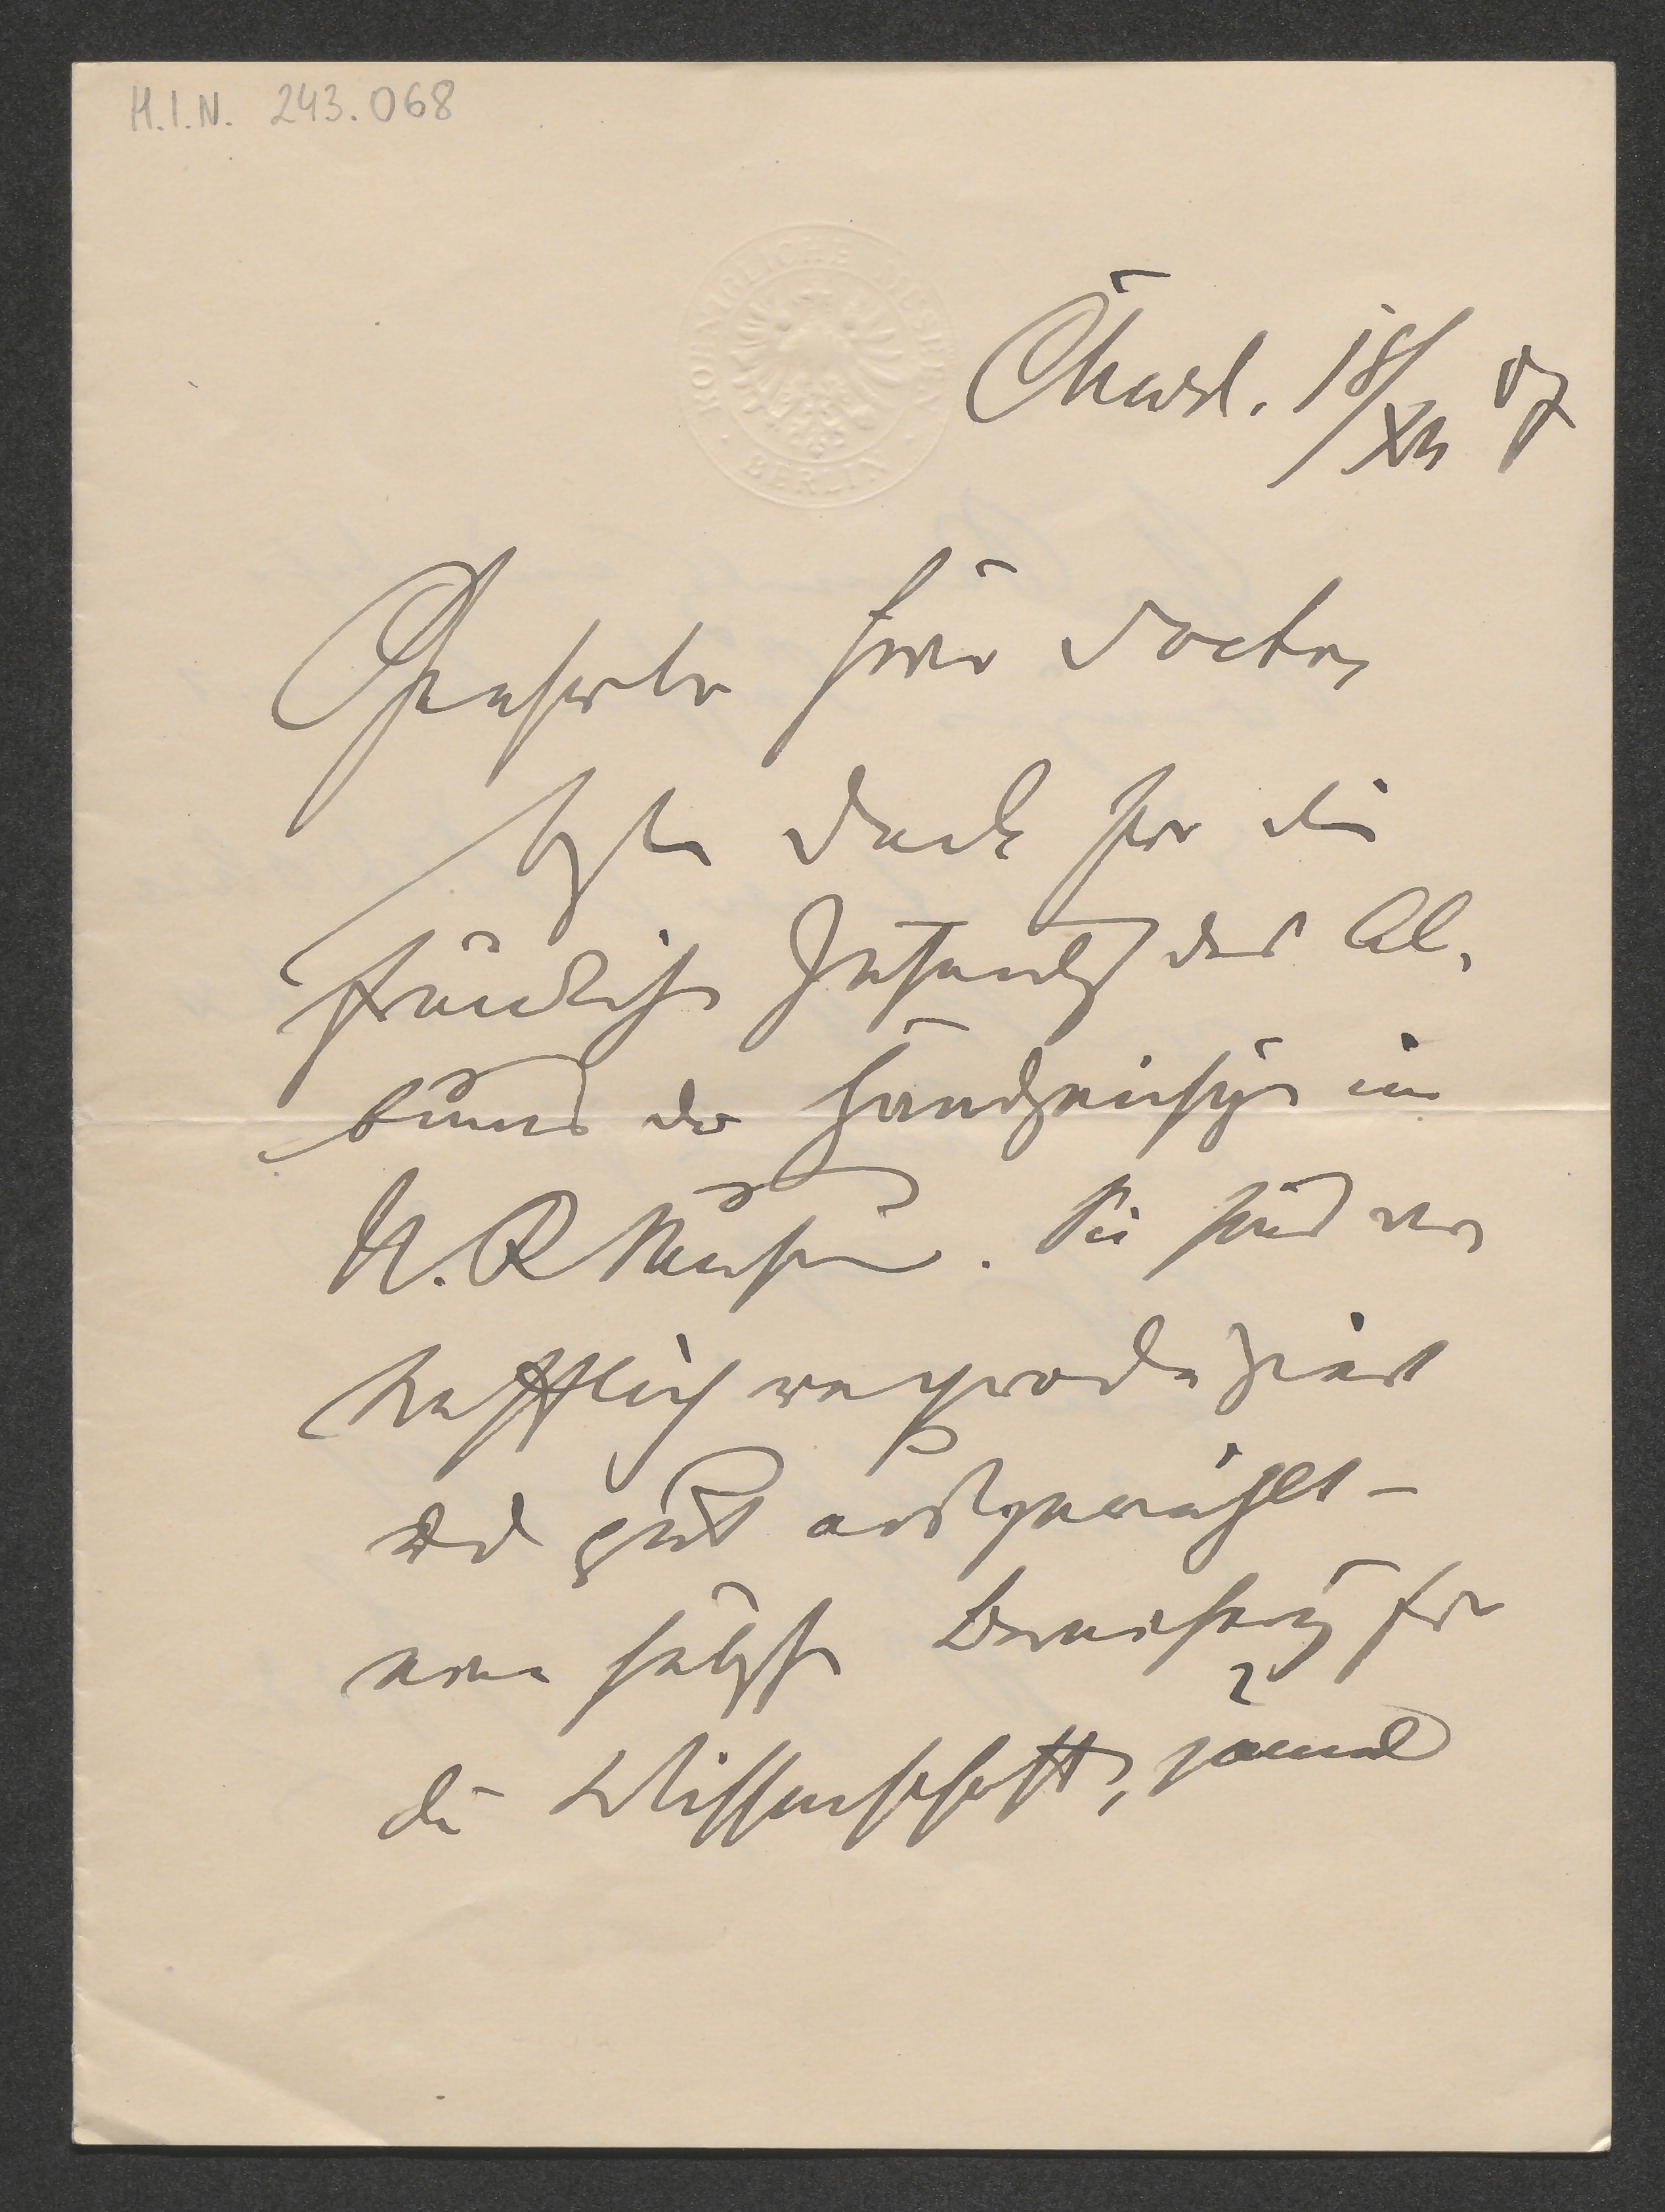 H.I.N. 243.068
KOENIGLICHE MUSEEN
BERLIN
Charl. 18/XII 07
Geehrter Herr Doctor,
besten Dank für die
freundliche Zusendg des Al-
bums der Handzeichngn im
N. R. Museum. Sie sind vor
trefflich reproduziert
und gut ausgewählt –
eine Bereicherung für
die Wissenschaft, zumal